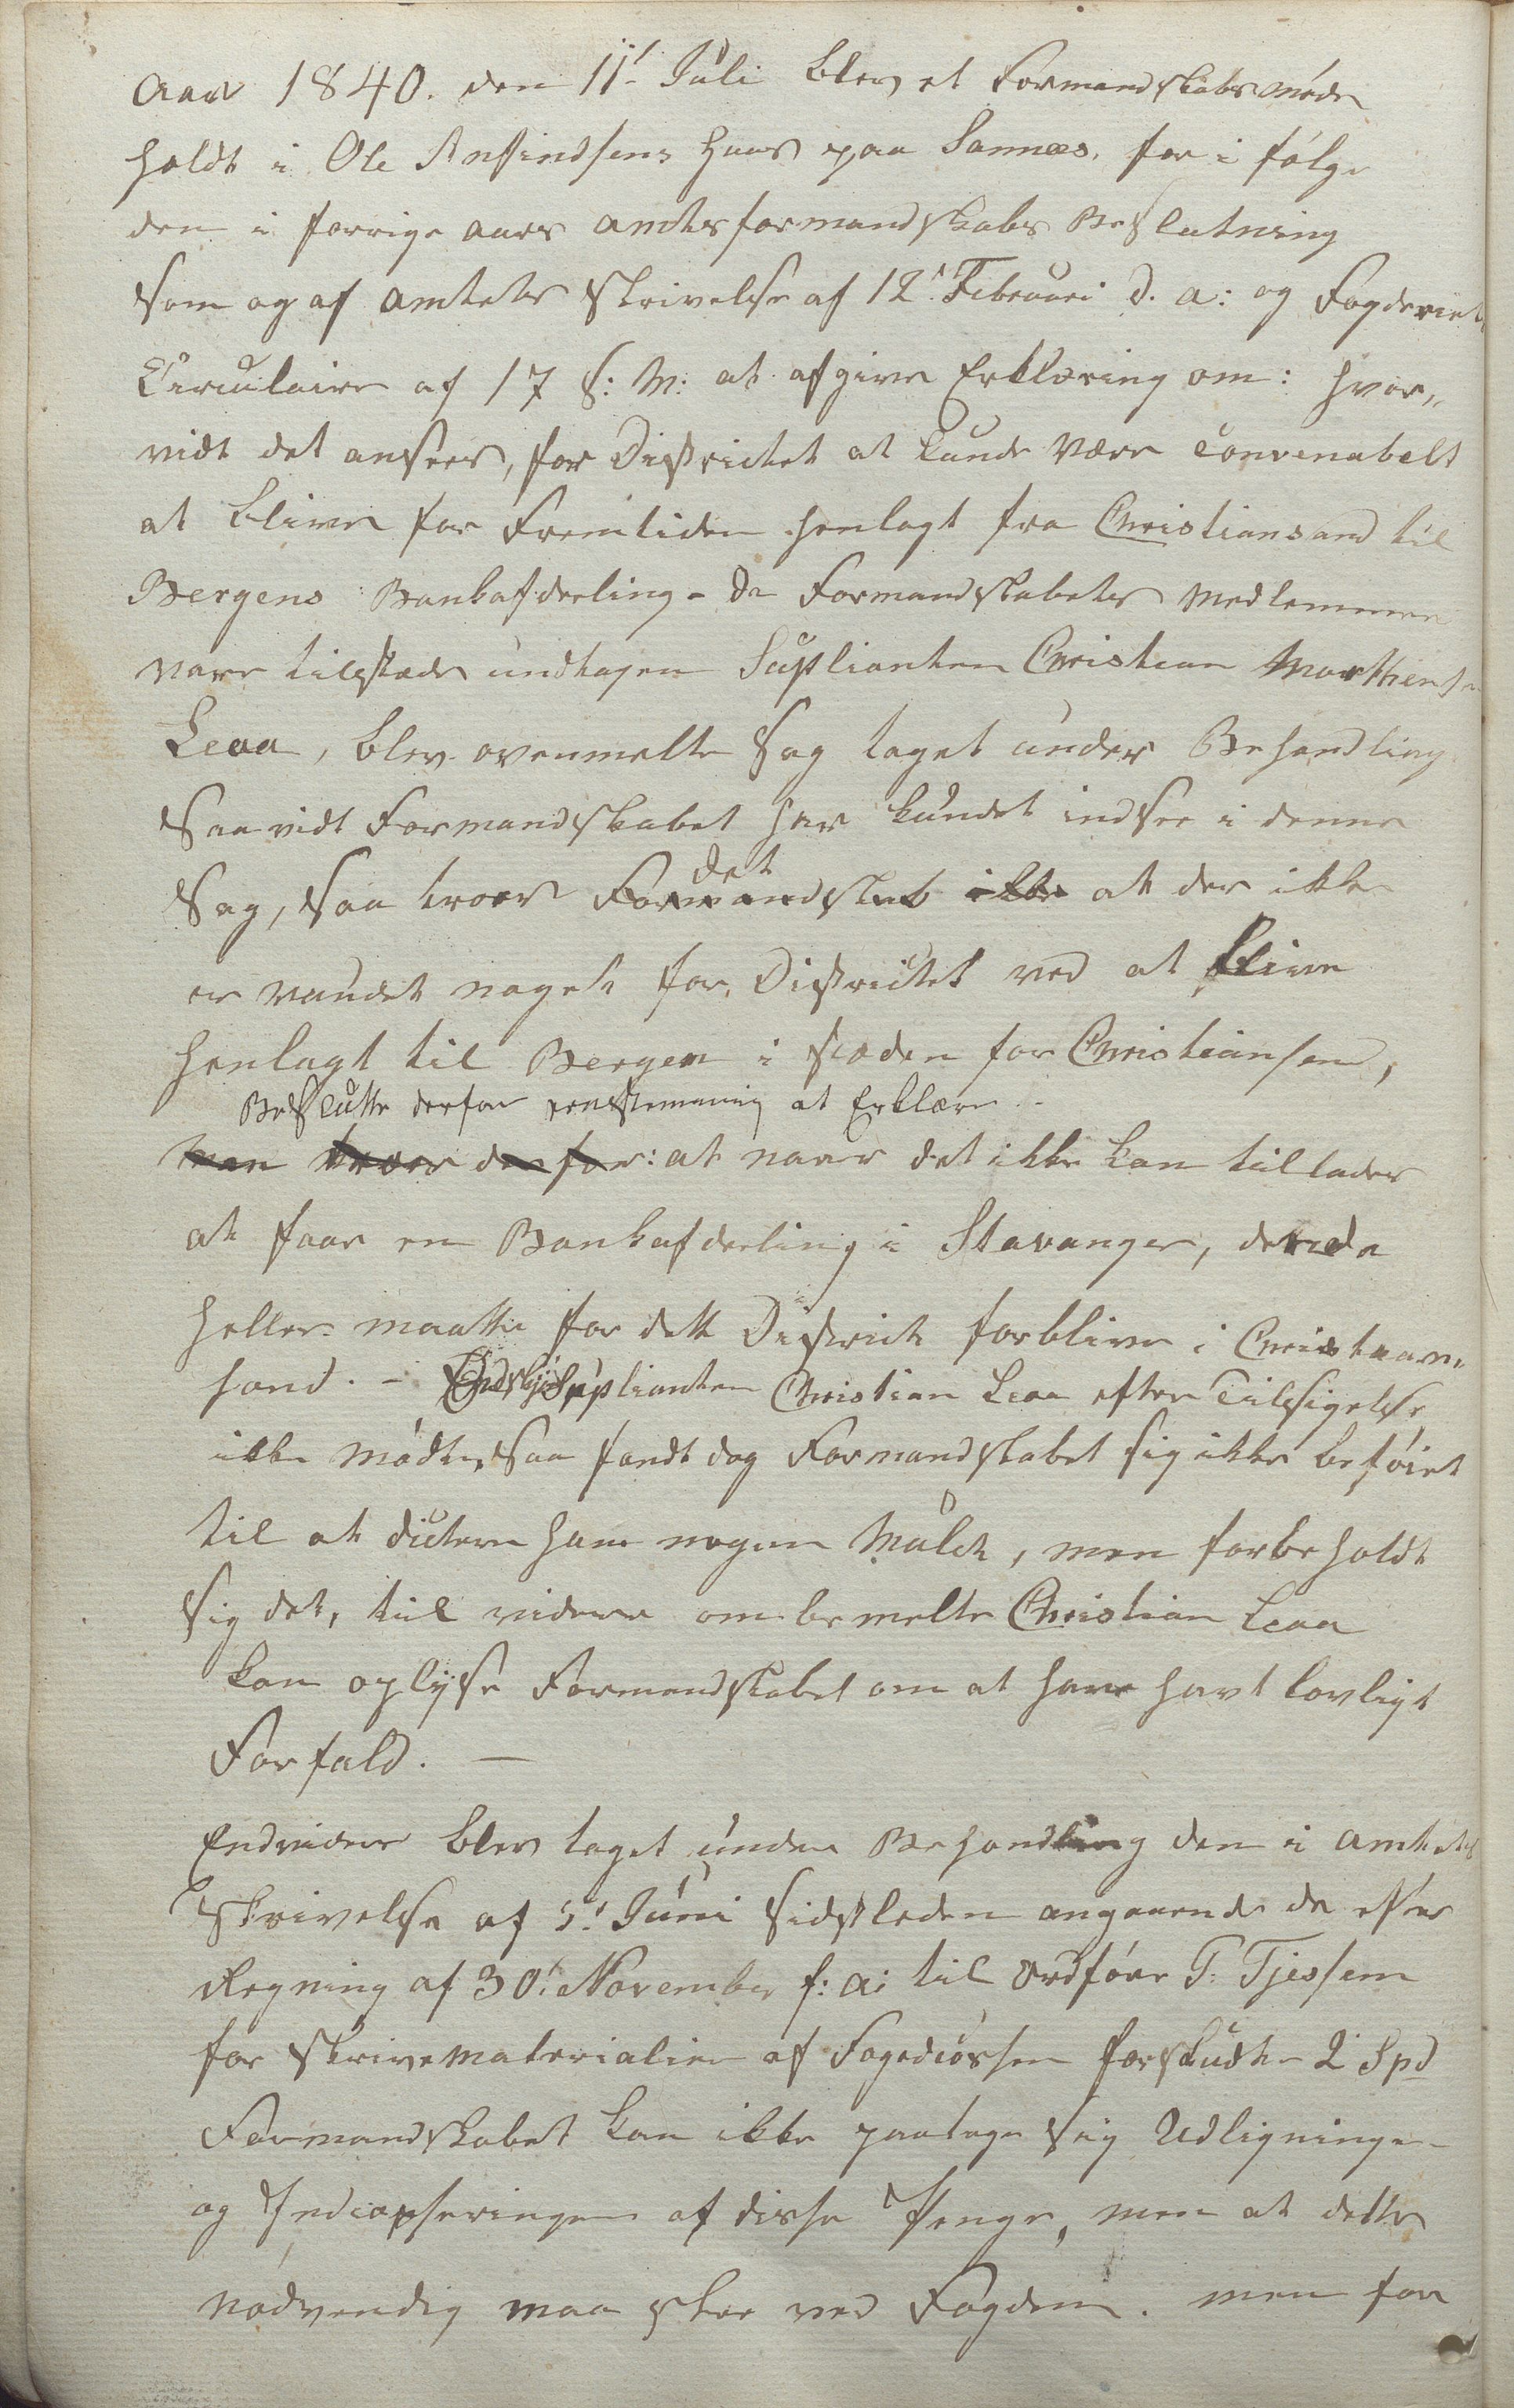 Aar 1840. den 11' Juli blev et Formandskabsmøde
holdt i Ole Ansindsens Huus paa Sannæs, for i følge
den i forrige aars Amtsformandskabs Beslutning
som og af Amtets Skrivelse af 12' Februari d. a: og Fogderiets
Circulaire af 17 s: M: at afgive Erklæring om: hvor„
vidt det ansees, for Districtet at kunde være convenabelt
at blive for Fremtiden henlagt fra Christiansand til
Bergens Bankafdeeling – De Formandskabets Medlemmer
vare tilstæde undtagen Suplianten Christian Morthens
Leaa, blev ovenmelte Sag taget under Behandling
Saavidt Formandskabet har kundet indsee i denne
Sag, saa troer Formandskabdet ikke at der ikke
er vundet noget for Districtet ved at blive
henlagt til Bergen i stæden for Christiansand,
Beslutte derfor eenstemmig at Erklære
man troer derfor: at naar det ikke kan tillades
at faae en Bankafdeeling i Stavanger, det da
heller maatte for dette District forblive i Christian„
sand. – Endskjøt Suplianten Christian Leaa efter Tilsigelse
ikke mødte, saa fandt dog Formandskabet sig ikke beføiet
til at dictere ham nogen Mulct, men forbeholdt
sig det, til videre ombemelte Christian Leaa
kan oplyse Formandskabet om at have havt lovligt
Forfald. —
Endvidere blev taget under Behandling den i Amtets
Skrivelse af 5' Juni sidstleden angaaende de efter
Regning af 30' November f: a: til Ordfører T. Tjessem
for Skrivematerialier af Fogedcassen forskudte 2 Spd
Formandskabet kan ikke paatage sig Udligningen
og Indcasseringen af disse Penge, men at dette
nødvendig maa skee ved Fogden. men for